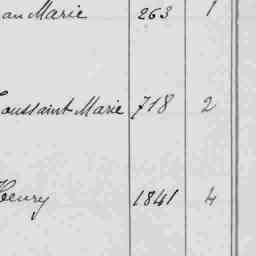 an Marie 263 1
oussaint Marie 718 2
Henry 1841 4